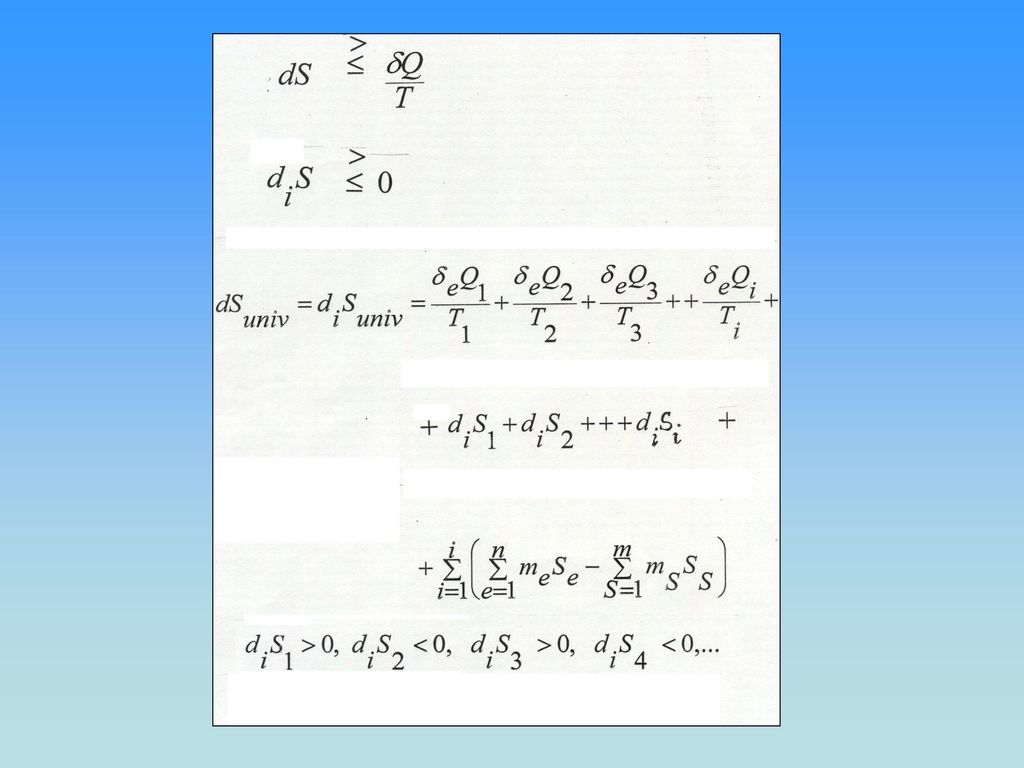 dS >≤ δQ/T
d_i S >≤ 0
dS_univ = d_i S_univ = δ_e Q_1/T_1 + δ_e Q_2/T_2 + δ_e Q_3/T_3 + + δ_e Q_i/T_i +
+ d_i S_1 + d_i S_2 + + + d_i S_i +
+ Σ_{i=1}^{i} ( Σ_{e=1}^{n} m_e S_e − Σ_{S=1}^{m} m_S S_S )
d_i S_1 > 0, d_i S_2 < 0, d_i S_3 > 0, d_i S_4 < 0,...